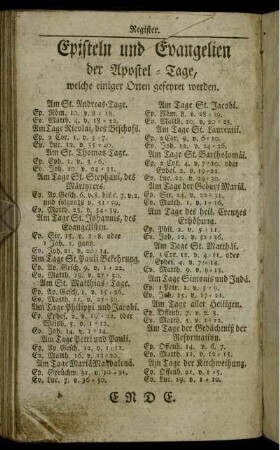 Register.
Episteln und Evangelien
der Apostel-Tage,
welche einiger Orten gefeyret werden.
Am St. Andreas-Tage.
Ep. Röm. 10. v. 8-18.
Ev. Matth. 4. v. 18-22.
Am Tage Nicolai, des Bischofs.
Ep. 2 Cor. 1. v. 3-7.
Ev. Luc. 12. v. 35-40.
Am St. Thomas-Tage.
Ep. Eph. 1. v. 3-6.
Ev. Joh. 20. v. 24-31.
Am Tage St. Stephani, des
Märtyrers.
Ep. Ap. Gesch. 6. v. 8. bis c. 7. v. 2.
und folgends v. 51-59.
Ev. Matth. 23. v. 34-39.
Am Tage St. Johannis, des
Evangelisten.
Ep. Sir. 15. v. 1-8. oder
1 Joh. 1. ganz.
Ev. Joh. 21. v. 20-24.
Am Tage St. Pauli Bekehrung.
Ep. Ap. Gesch. 9. v. 1-22.
Ev. Matth. 19. v. 27-30.
Am St. Matthias-Tage.
Ep. Ap. Gesch. 1. v. 15-26.
Ev. Matth. 11. v. 25-30.
Am Tage Philippi und Jacobi.
Ep. Ephes. 2. v. 19-22. oder
Weish. 5. v. 1-12.
Ev. Joh. 14. v. 1-14.
Am Tage Petri und Pauli.
Ep. Ap. Gesch. 12. v. 1-11.
Ev. Matth. 16. v. 13-20.
Am Tage Mariä Magdalenä.
Ep. Sprüchw. 31. v. 10-31.
Ev. Luc. 7. v. 36-50.
Am Tage St. Jacobi.
Ep. Röm. 8. v. 28-39.
Ev. Matth. 20. v. 20-23.
Am Tage St. Laurentii.
Ep. 2 Cor. 9. v. 6-10.
Ev. Joh. 12. v. 24-26.
Am Tage St. Bartholomäi.
Ep. 2 Cor. 4. v. 7-10. oder
Ephes. 2. v. 19-22.
Ev. Luc. 22. v. 24-30.
Am Tage der Geburt Mariä.
Ep. Sir. 24. v. 22-31.
Ev. Matth. 1. v. 1-16.
Am Tage des heil. Creuzes
Erhöhung.
Ep. Phil. 2. v. 5-11.
Ev. Joh. 12. v. 31-36.
Am Tage St. Matthäi.
Ep. 1 Cor. 12. v. 4-11. oder
Ephes. 4. v. 7-14.
Ev. Matth. 9. v. 9-13.
Am Tage Simonis und Judä.
Ep. 1 Petr. 1. v. 3-9.
Ev. Joh. 15. v. 17-21.
Am Tage aller Heiligen.
Ep. Offenb. 7. v. 2. 3.
Ev. Matth. 5. v. 1-12.
Am Tage der Gedächtniß der
Reformation.
Ep. Offenb. 14. v. 6. 7.
Ev. Matth. 11. v. 12-15.
Am Tage der Kirchweihung.
Ep. Offenb. 21. v. 1-5.
Ev. Luc. 19. v. 1-10.
ENDE.